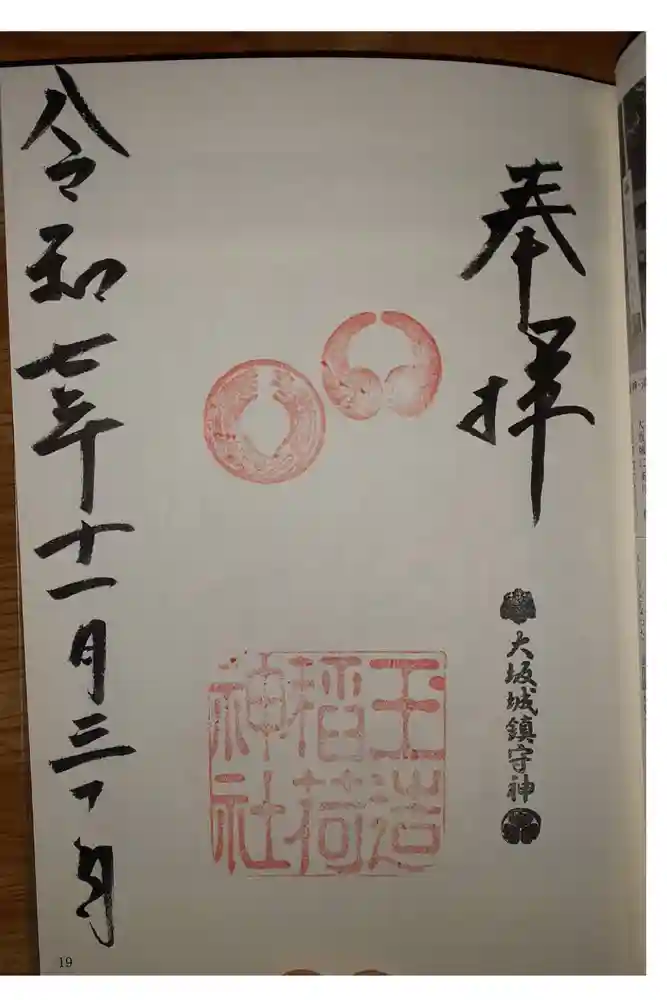 奉拝
大坂城鎮守神
玉造
稲荷
神社
令和七年十一月三十日
19